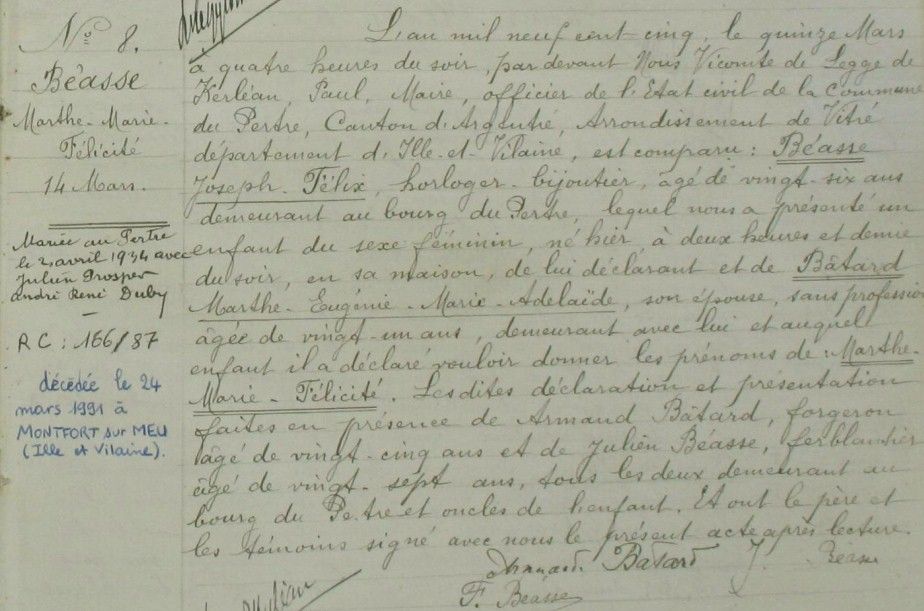 N° 8.
Béasse
Marthe-Marie-
Félicité
14 Mars.
Mariée au Pertre
le 2 avril 1934 avec
Julien Prosper
André René Duby
RC : 166/87
décédée le 24
mars 1991 à
MONTFORT sur MEU
(Ille et Vilaine).
L'an mil neuf cent cinq, le quinze Mars
à quatre heures du soir, par devant Nous Vicomte de Legge de
Kerléan, Paul, Maire, officier de l'Etat civil de la Commune
du Pertre, Canton d'Argentré, Arrondissement de Vitré
département d'Ille-et-Vilaine, est comparu : Béasse
Joseph-Félix, horloger-bijoutier, âgé de vingt-six ans
demeurant au bourg du Pertre, lequel nous a présenté un
enfant du sexe féminin, né hier, à deux heures et demie
du soir, en sa maison, de lui déclarant et de Bâtard
Marthe-Eugénie-Marie-Adelaïde, son épouse, sans profession
âgée de vingt-un ans, demeurant avec lui et auquel
enfant il a déclaré vouloir donner les prénoms de Marthe-
Marie-Félicité. Lesdites déclaration et présentation
faites en présence de Armand Bâtard, forgeron
âgé de vingt-cinq ans et de Julien Béasse, ferblantier
âgé de vingt-sept ans, tous les deux demeurant au
bourg du Pertre et oncles de l'enfant. Et ont le père et
les témoins signé avec nous le présent acte après lecture.
Armand Batard J. Béasse
F. Béasse